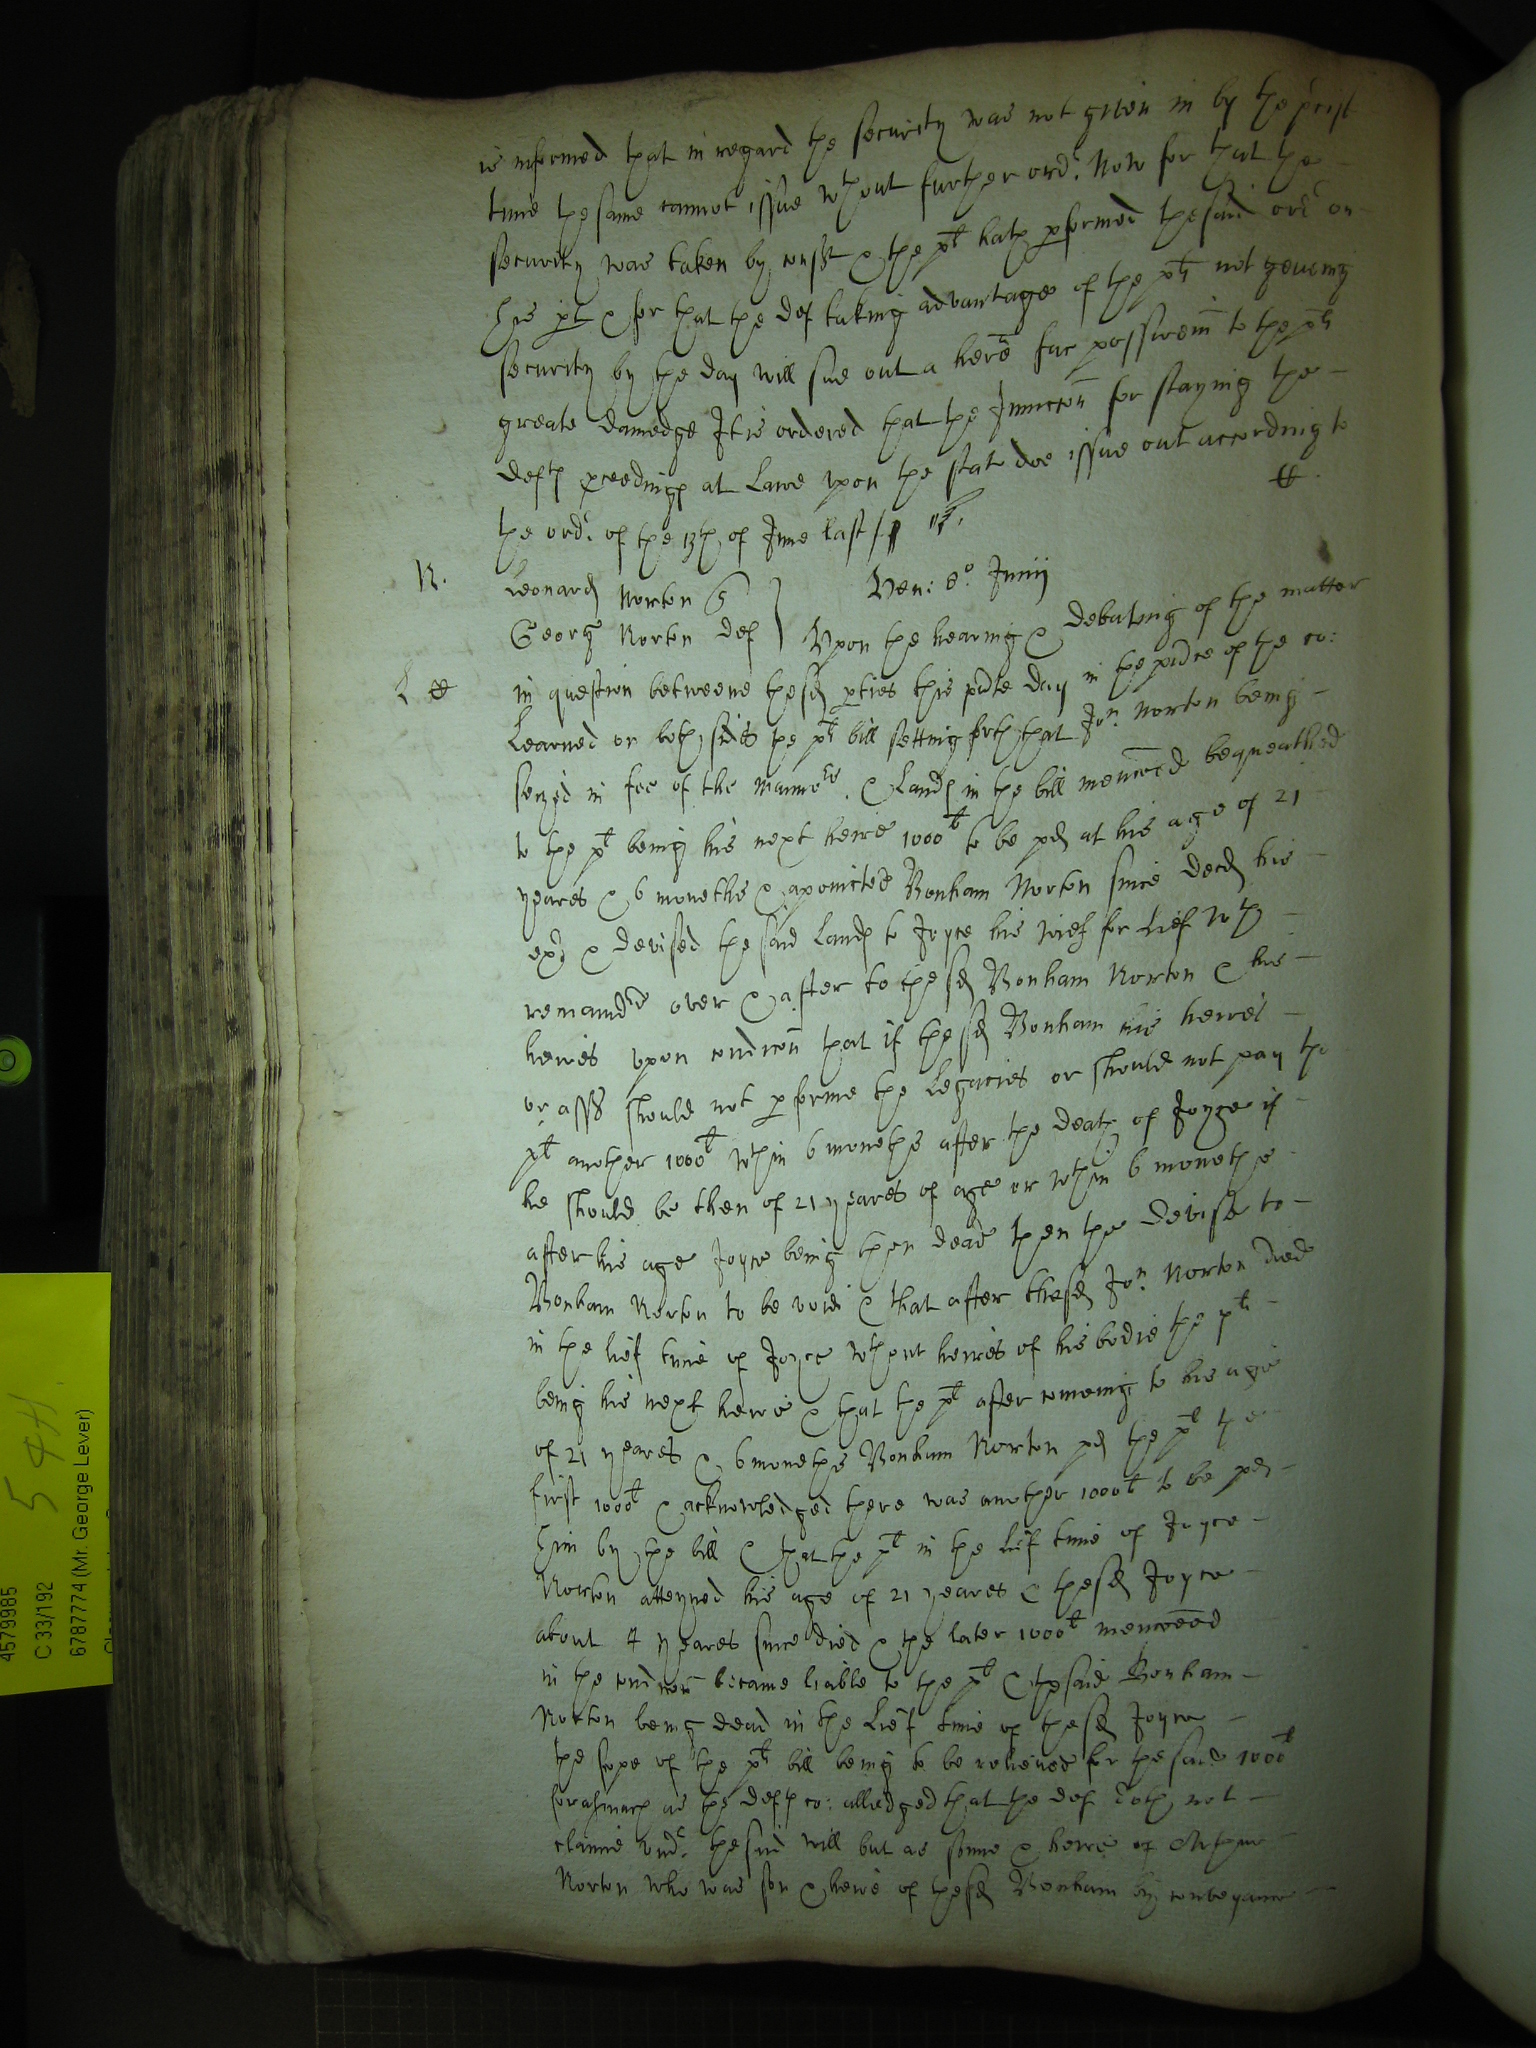 is informed that in regard the security was not given in by the prcise
time the same cannot issue wthout further ordr. Now for that the
security was taken by consent & the plt hath pformed the said ordr on
his pt & for that the def taking advantage of the plts not geueing
security by the day will sue out a here fac possessionem to the plts
greate damedge It is ordered that the Iniunccon for staying the
defts pceedings at Lawe vpon the statute doe issue out according to
the ordr. of the 13th of June last
N.
Leonard Norton
Ven: 8o. Junij
George Norton def
Vpon the hearing & debateing of the matter
in question betweene these pties this pnte day in the pnce of the co:
Learned on both sides the plts bill setting forth that Jon. Norton being
seized in fee of the mannors & Lands in the bill menconed bequeathed
to the plt being his next heire 1000l to be pd at his age of 21
yeares & 6 moneths & apointed Bonham Norton since decd his
exr & devised the said Lands to Joyce his wief for Lief wth
remaindr over & after to the sd Bonham Norton & his
heires vpon condicon that if the sd Bonham his heires
or asss should not pforme the Legacies or should not pay the
plt another 1000l wthin 6 moneths after the death of Joyce if
he should be then of 21 yeares of age or wthin 6 moneths
after his age Joyce being then dead then the devise to
Bonham Norton to be void & that after the sd Jon. Norton died
in the lief time of Joyce wthout heires of his bodie the plt
being his next heire & that the plt after comeing to his age
of 21 yeares & 6 moneths Bonham Norton pd the plt the
first 1000l & acknowledged there was another 1000l to be pd
him by the bill & that the plt in the lief time of Joyce
Norton atteyned his age of 21 yeares & the sd Joyce
about 4 yeares since died & the later 1000l menconed
in the condicon became liable to the plt & the said Bonham
Norton being dead in the Lief time of the sd Joyce
the scope of the plts bill being to be releiued for the said 1000l
forasmuch as the defts co: alledged that the def doth not
claime vndr. the said will but as sonne & heire of Arthur
Norton who was son & heire of the sd Bonham by conveyance
54H.
4579985
C 33/192
6787774 (Mr. George Lever)